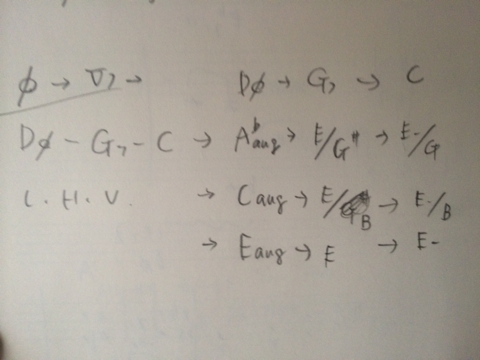 φ → V7 → Dφ → G7 → C
Dφ - G7 - C → A♭aug → E/G# → E-/G
L.H.V. → Caug → E/B → E-/B
→ Eaug → E → E-